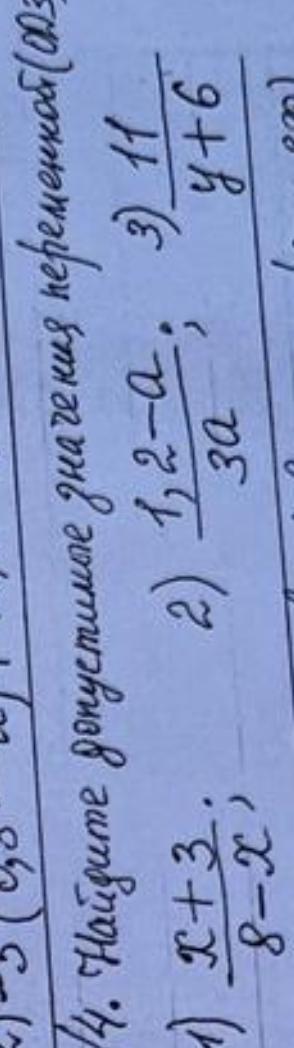 4. Найдите допустимое значения переменной (ОДЗ
1) x+3/8-x; 2) 1,2-a/3a; 3) 11/y+6